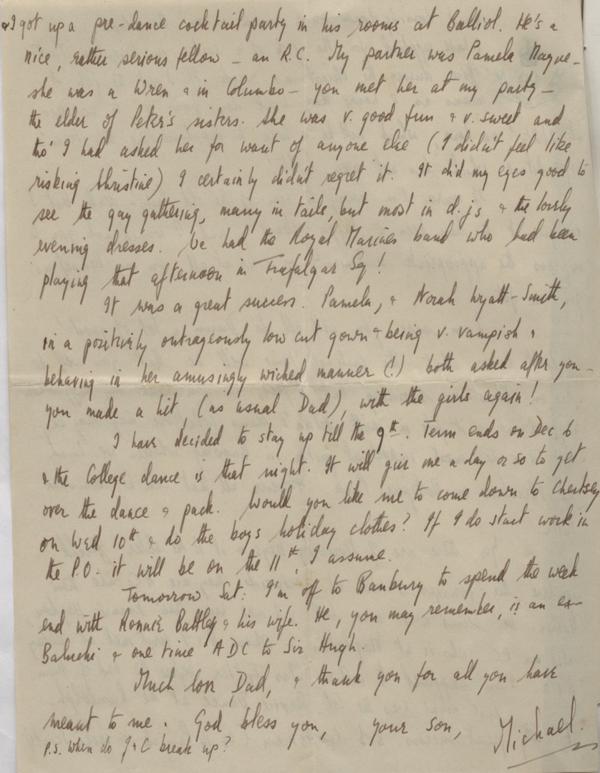 & I got up a pre-dance cocktail party in his rooms at Balliol. He's a
nice, rather serious fellow - an R.C. My partner was Pamela Nague -
she was a Wren & in Columbo - you met her at my party -
the elder of Peter's sisters. She was v. good fun & v. sweet and
tho' I had asked her for want of anyone else (I didn't feel like
risking Christine) I certainly didn't regret it. It did my eyes good to
see the gay gathering, many in tails, but most in d.js, & the lovely
evening dresses. We had the Royal Marines band who had been
playing that afternoon in Trafalgar Sq!
It was a great success. Pamela, & Norah Wyatt-Smith,
in a positively outrageously low cut gown & being v. vampish &
behaving in her amusingly wicked manner (!) both asked after you -
you made a hit, (as usual Dad), with the girls again!
I have decided to stay up till the 9th. Term ends on Dec 6
& the College dance is that night. It will give me a day or so to get
over the dance & pack. Would you like me to come down to Chertsey
on Wed 10th & do the boys holiday clothes? If I do start work in
the P.O. it will be on the 11th, I assume.
Tomorrow Sat: I'm off to Banbury to spend the week
end with Ronnie Battley & his wife. He, you may remember, is an ex-
Baluchi & one time ADC to Sir Hugh.
Much love Dad, & thank you for all you have
meant to me. God bless you, your son, Michael.
P.S. When do J & C break up?